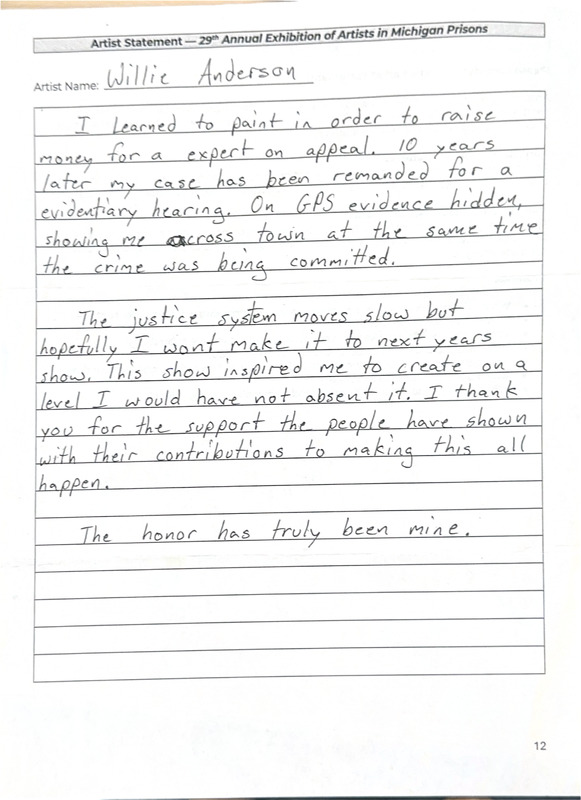 Artist Statement — 29th Annual Exhibition of Artists in Michigan Prisons
Artist Name: Willie Anderson
I learned to paint in order to raise
money for a expert on appeal. 10 years
later my case has been remanded for a
evidentiary hearing. On GPS evidence hidden,
showing me across town at the same time
the crime was being committed.
The justice system moves slow but
hopefully I wont make it to next years
show. This show inspired me to create on a
level I would have not absent it. I thank
you for the support the people have shown
with their contributions to making this all
happen.
The honor has truly been mine.
12